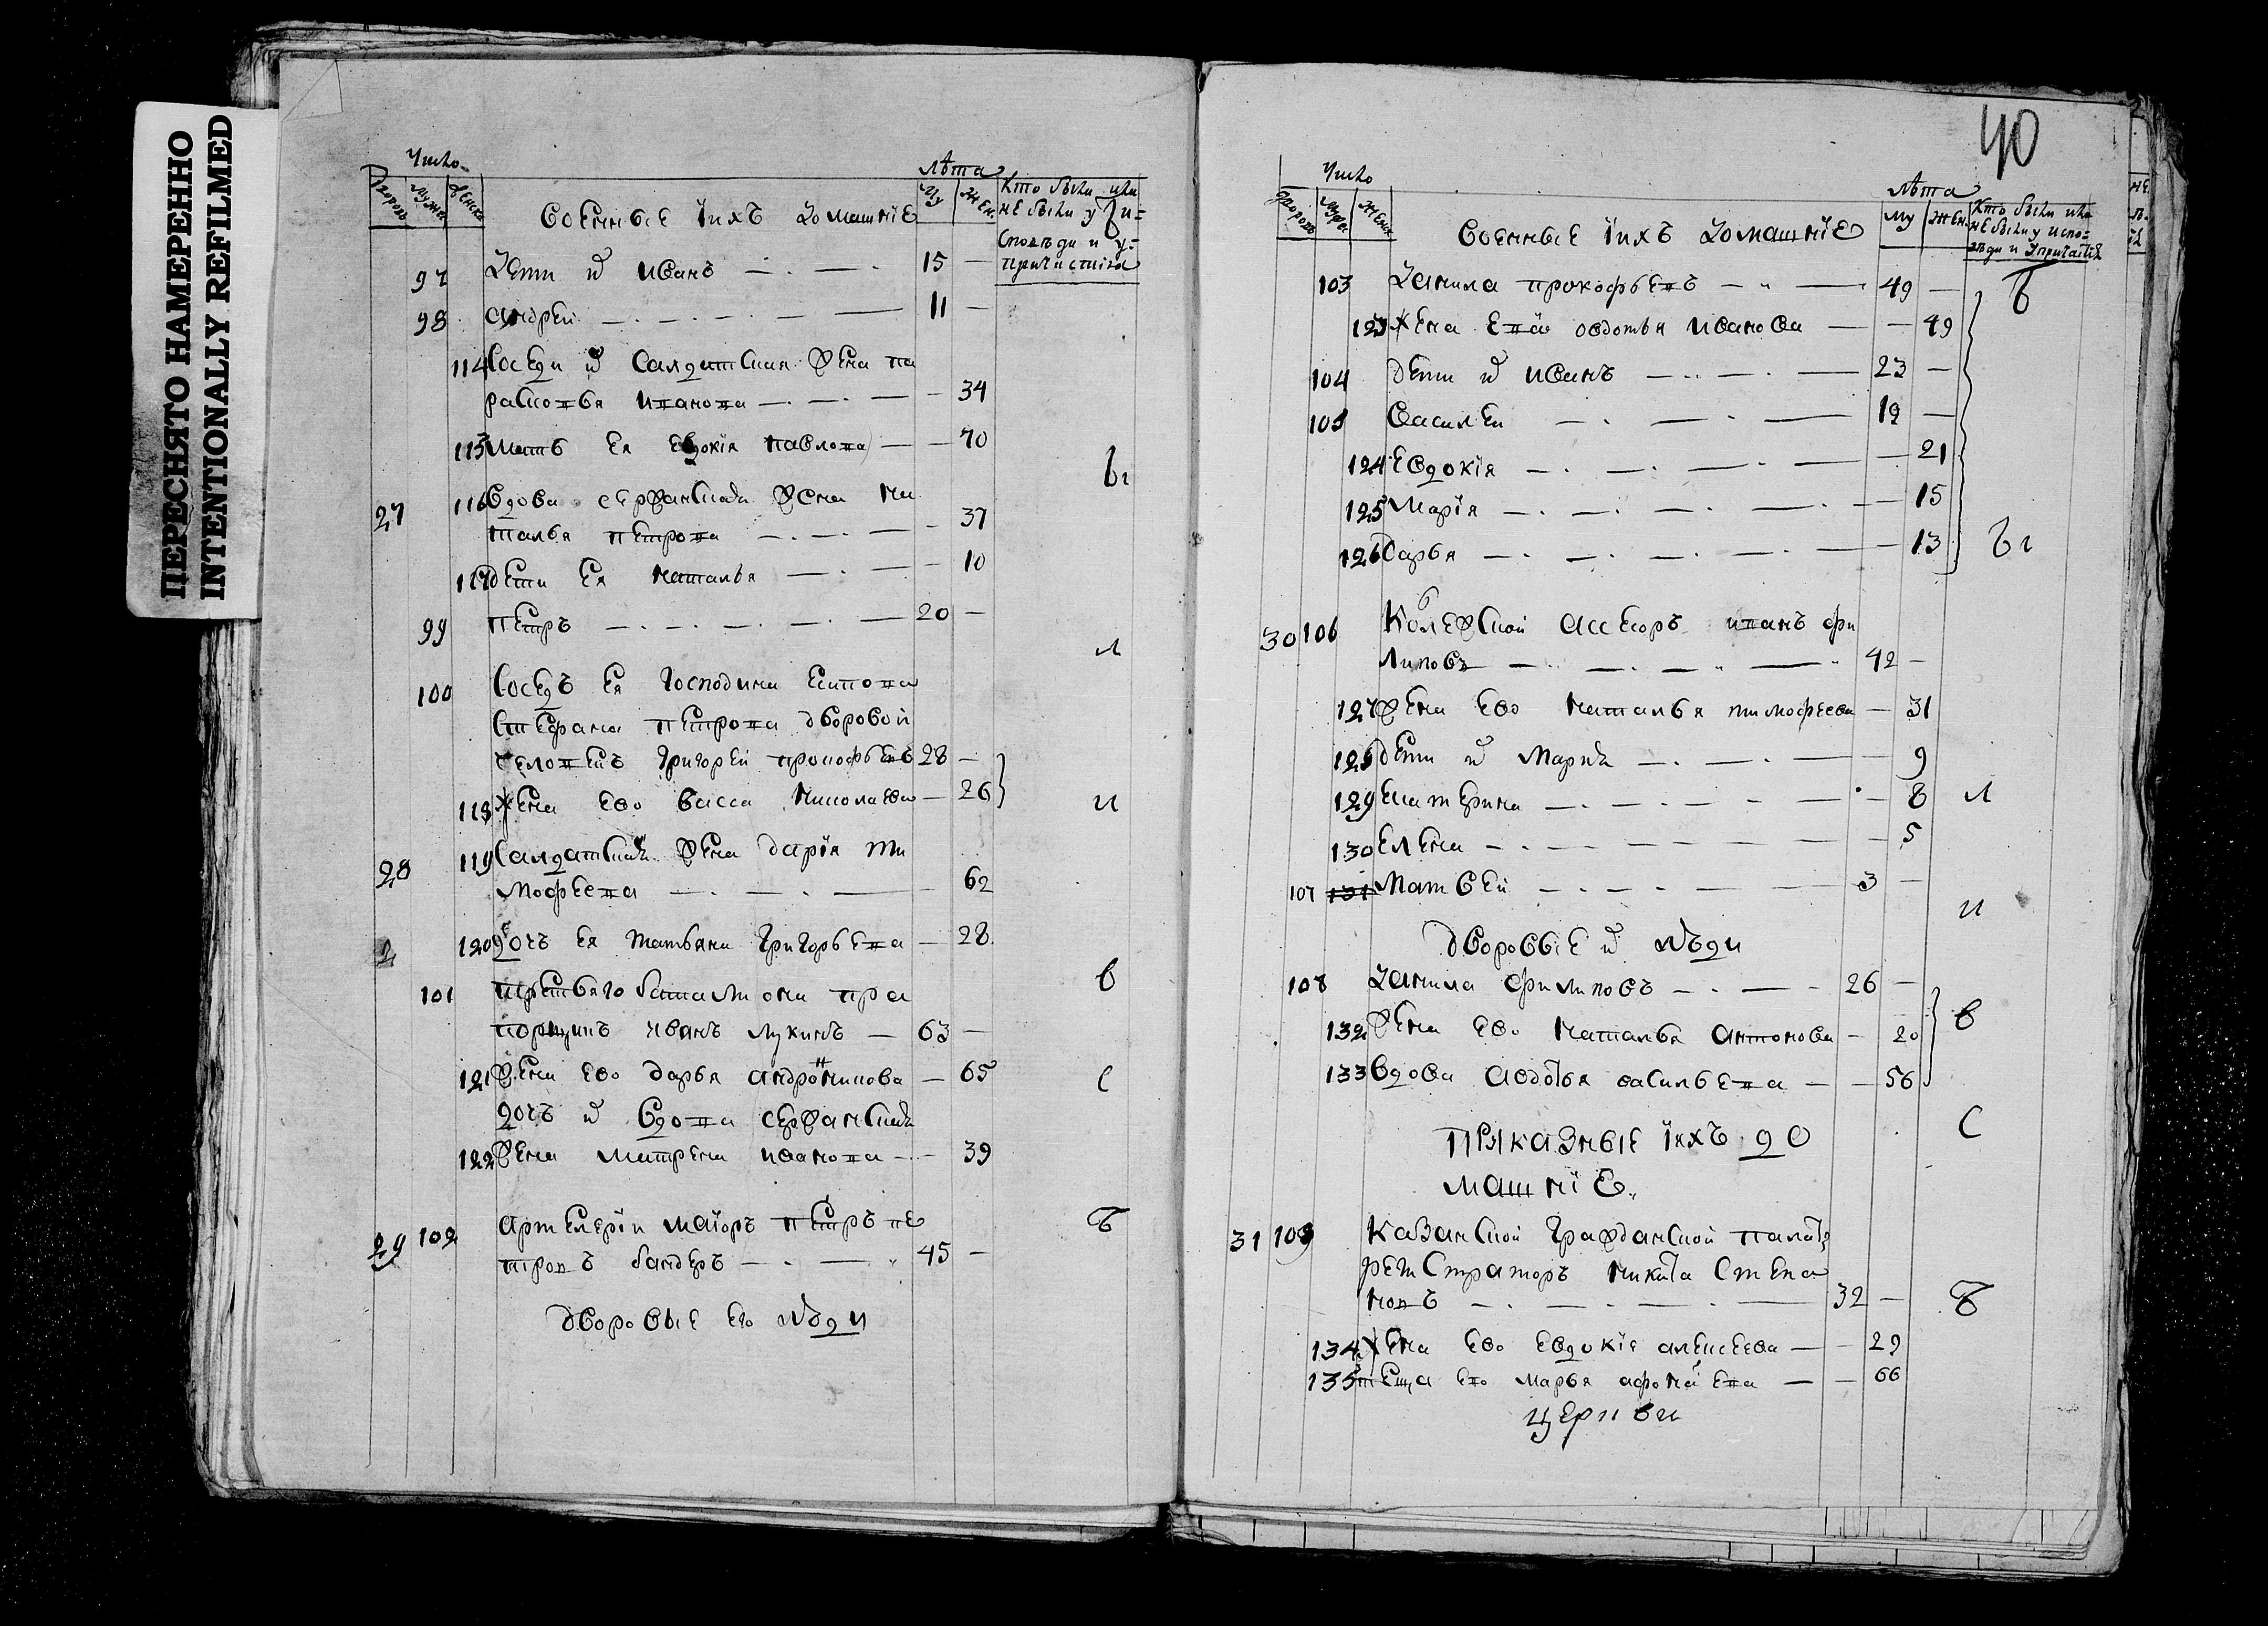 ПЕРЕСНЯТО НАМЕРЕННО
INTENTIONALLY REFILMED
Число
дворовъ мужес женска
военные їихъ домашнїе
лѣта
му жен
Кто были или
не были у и=
споведи и у=
причастїя
97 дети их иванъ 15 —
98 андреи 11 —
114 соседи их салдатская жена па
расковья иванова — 34
115 мать ея евдокїя павлова — 70
27 116 вдова сержанская жена на
талья петрова — 37
117 дети ея наталья — 10
99 петръ 20 —
100 соседъ ея господина есипова
стефана петрова дворовой
человекъ григореи прокофьевъ 28 —
118 жена ево васса николаева — 26
28 119 салдатская жена дарїя ти
мофеева — 62
120 дочь ея татьяна григорьева — 28
101 третьяго баталиона пра
порщикъ иванъ лукинъ — 63 —
121 жена ево дарья андроникова — 65
дочь их вдова сержанская
122 жена матрена иванова — 39
29 102 артилерїи маїоръ петръ пе
тровъ бандеръ 45 —
дворовые его люди
вї
л
и
в
с
Б
40
Число
дворовъ мужес женска
военные їихъ домашнїе
лѣта
му жен
Кто были или
не были у испо=
веди и у причастїя
103 данила прокофьевъ 49 —
123 жена ево овдотья иванова — 49
104 дети их иванъ 23 —
105 василеи 19 —
124 евдокїя — 21
125 марїя — 15
126 дарья — 13
30 106 колежской ассесоръ иванъ фи
липовъ 42 —
127 жена ево наталья тимофеева — 31
128 дети их марїя — 9
129 екатерина — 8
130 елена — 5
107 131 матвеи 3 —
дворовые их люди
108 данила филиповъ 26 —
132 жена ево наталья антонова — 20
133 вдова авдотья васильева — 56
приказные їихъ до
машнїе
31 109 казанской гражданской палаты
регистраторъ никита степа
новъ 32 —
134 жена ево евдокїя алексеева — 29
135 теща ево марья афонасева — 66
церкви
Б
вї
л
и
в
с
Б